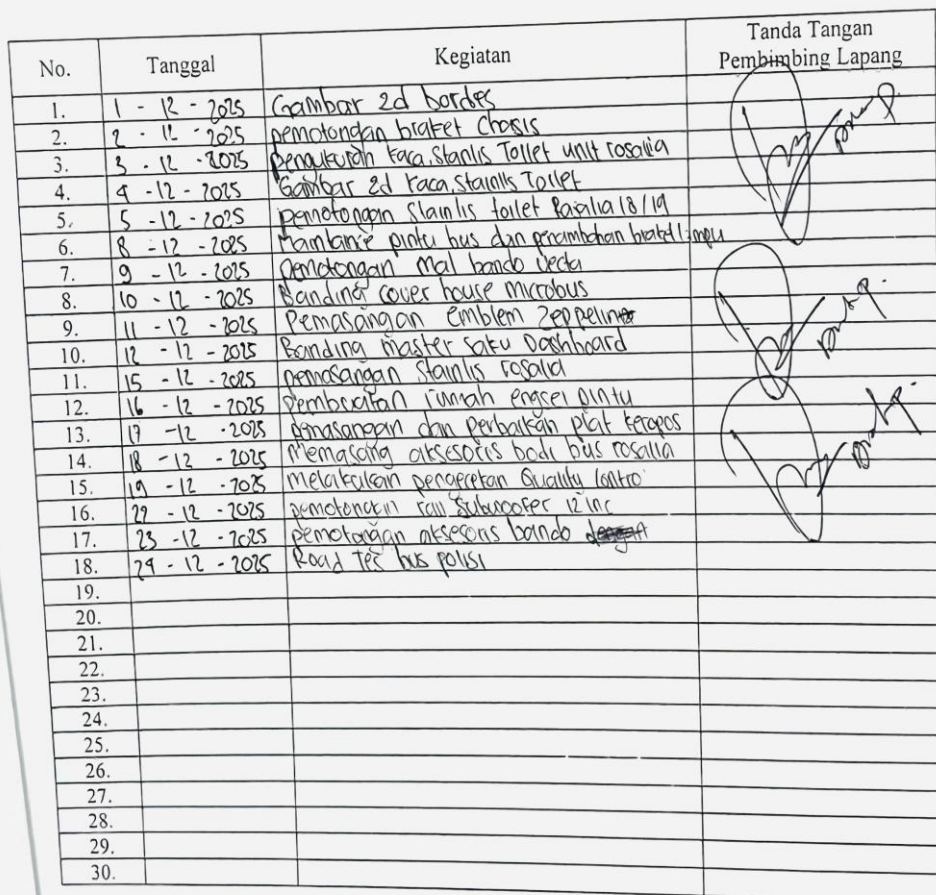 No. Tanggal Kegiatan Tanda Tangan Pembimbing Lapang
1. 1 - 12 - 2025 Gambar 2d bordes
2. 2 - 12 - 2025 pemotongan braket Chasis
3. 3 - 12 - 2025 pengukuran kaca, Stanlis Toilet unit rosalia
4. 4 - 12 - 2025 Gambar 2d kaca, Stainlis Toilet
5. 5 - 12 - 2025 pemotongan Stainlis toilet Rosalia 18/19
6. 8 - 12 - 2025 Maintance pintu bus dan penambahan braket lampu
7. 9 - 12 - 2025 pemotongan Mal bando Jecta
8. 10 - 12 - 2025 Banding cover house microbus
9. 11 - 12 - 2025 Pemasangan emblem Zeppelin
10. 12 - 12 - 2025 Banding master saku Dashboard
11. 15 - 12 - 2025 pemasangan Stainlis rosalia
12. 16 - 12 - 2025 Pembuatan rumah engsel pintu
13. 17 - 12 - 2025 pemasangan dan perbaikan plat keropos
14. 18 - 12 - 2025 Memasang aksesoris bodi bus rosalia
15. 19 - 12 - 2025 Melakukan pengecetan Quality Contro
16. 22 - 12 - 2025 pemotongan Subwoofer 12 inc
17. 23 - 12 - 2025 pemotongan aksesoris bando
18. 24 - 12 - 2025 Road Tes bus polisi
19.
20.
21.
22.
23.
24.
25.
26.
27.
28.
29.
30.